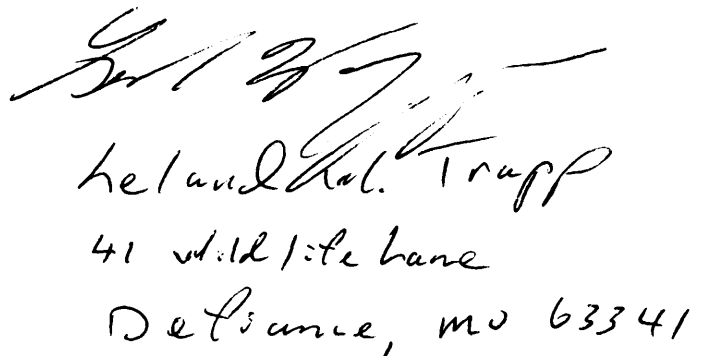 Leland W. Trapp
41 Wildlife Lane
Defiance, MO 63341